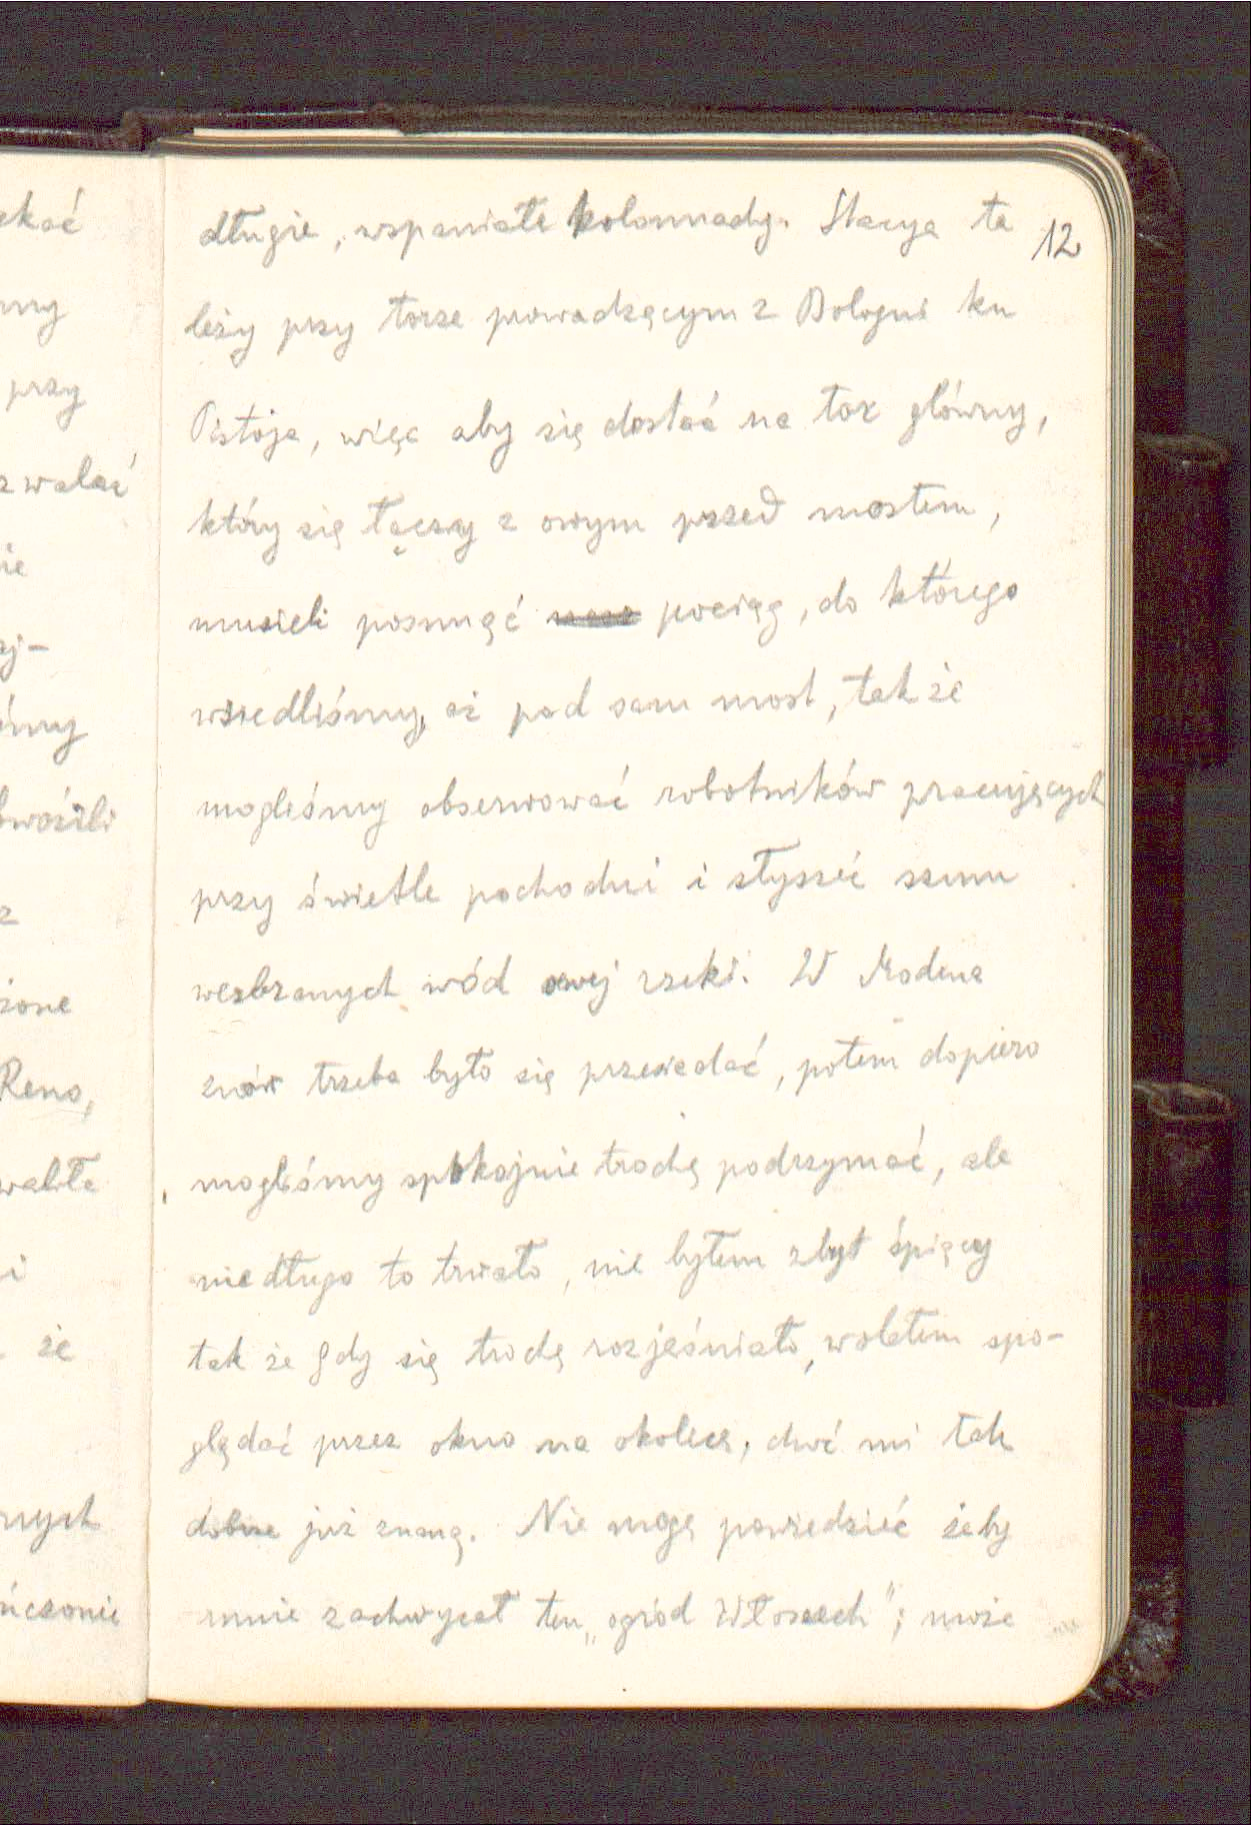 12
długie, wspaniałe kolonnady. Stacya ta
leży przy torze prowadzącym z Bologni ku
Pistoja, więc aby się dostać na tor główny,
który się łączy z owym przed mostem,
musieli posunąć pociąg, do którego
wsiedliśmy, aż pod sam most, tak że
mogliśmy obserwować robotników pracujących
przy świetle pochodni i słyszeć szum
wezbranych wód owej rzeki. W Modena
znów trzeba było się przesiadać, potem dopiero
mogliśmy spokojnie trochę podrzymać, ale
niedługo to trwało, nie byłem zbyt śpiący
tak że gdy się trochę rozjaśniało, wolałem spo-
glądać przez okno na okolicę, choć mi tak
dobrze już znaną. Nie mogę powiedzieć żeby
mnie zachwycał ten „ogród Włoszech"; może
zkać
przy
zwalać
nie
Reno,
że